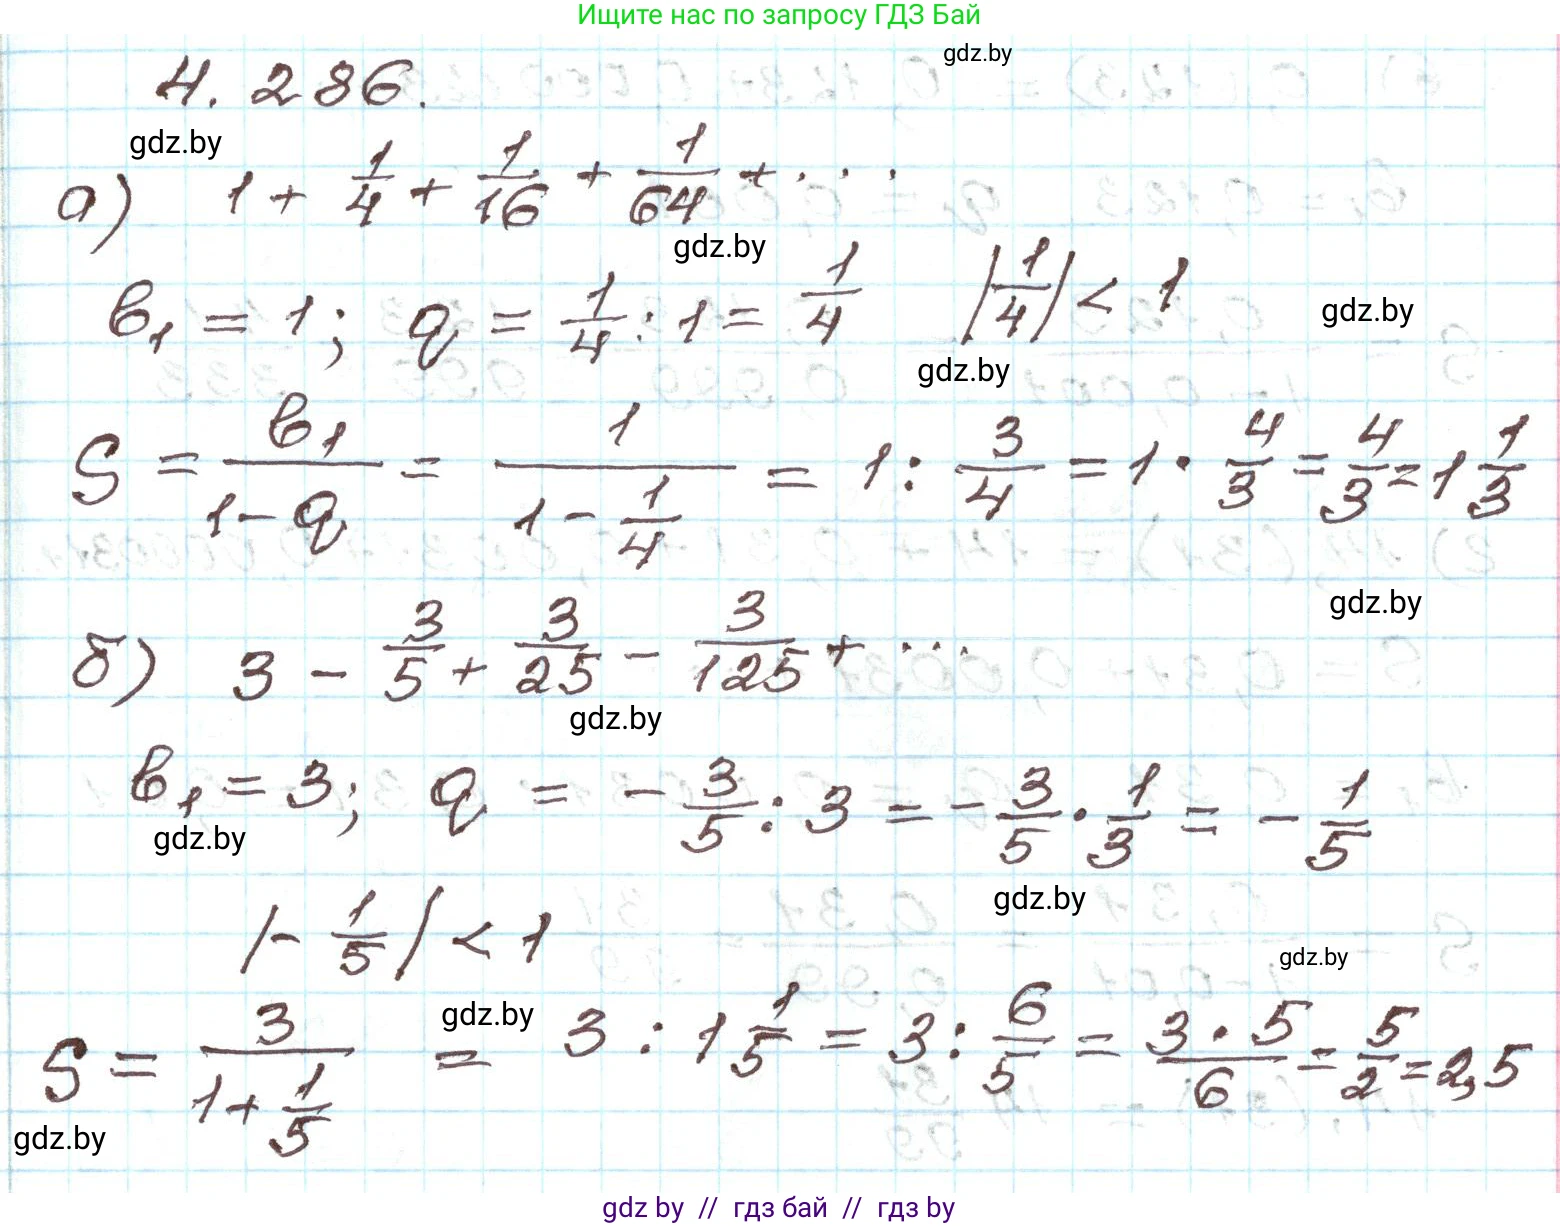 Ищите нас по запросу ГДЗ Бай
gdz.by
4.286.
gdz.by
а) 1 + 1/4 + 1/16 + 1/64 + ...
gdz.by
b₁ = 1; q = 1/4 : 1 = 1/4 |1/4| < 1
gdz.by
gdz.by
S = b₁/(1 - q) = 1/(1 - 1/4) = 1 : 3/4 = 1 · 4/3 = 4/3 = 1 1/3
gdz.by
б) 3 - 3/5 + 3/25 - 3/125 + ...
gdz.by
b₁ = 3; q = - 3/5 : 3 = - 3/5 · 1/3 = - 1/5
gdz.by
gdz.by
|- 1/5| < 1
gdz.by
gdz.by
S = 3/(1 + 1/5) = 3 : 1 1/5 = 3 : 6/5 = (3 · 5)/6 = 5/2 = 2,5
gdz.by
gdz by // гдз бай // гдз by